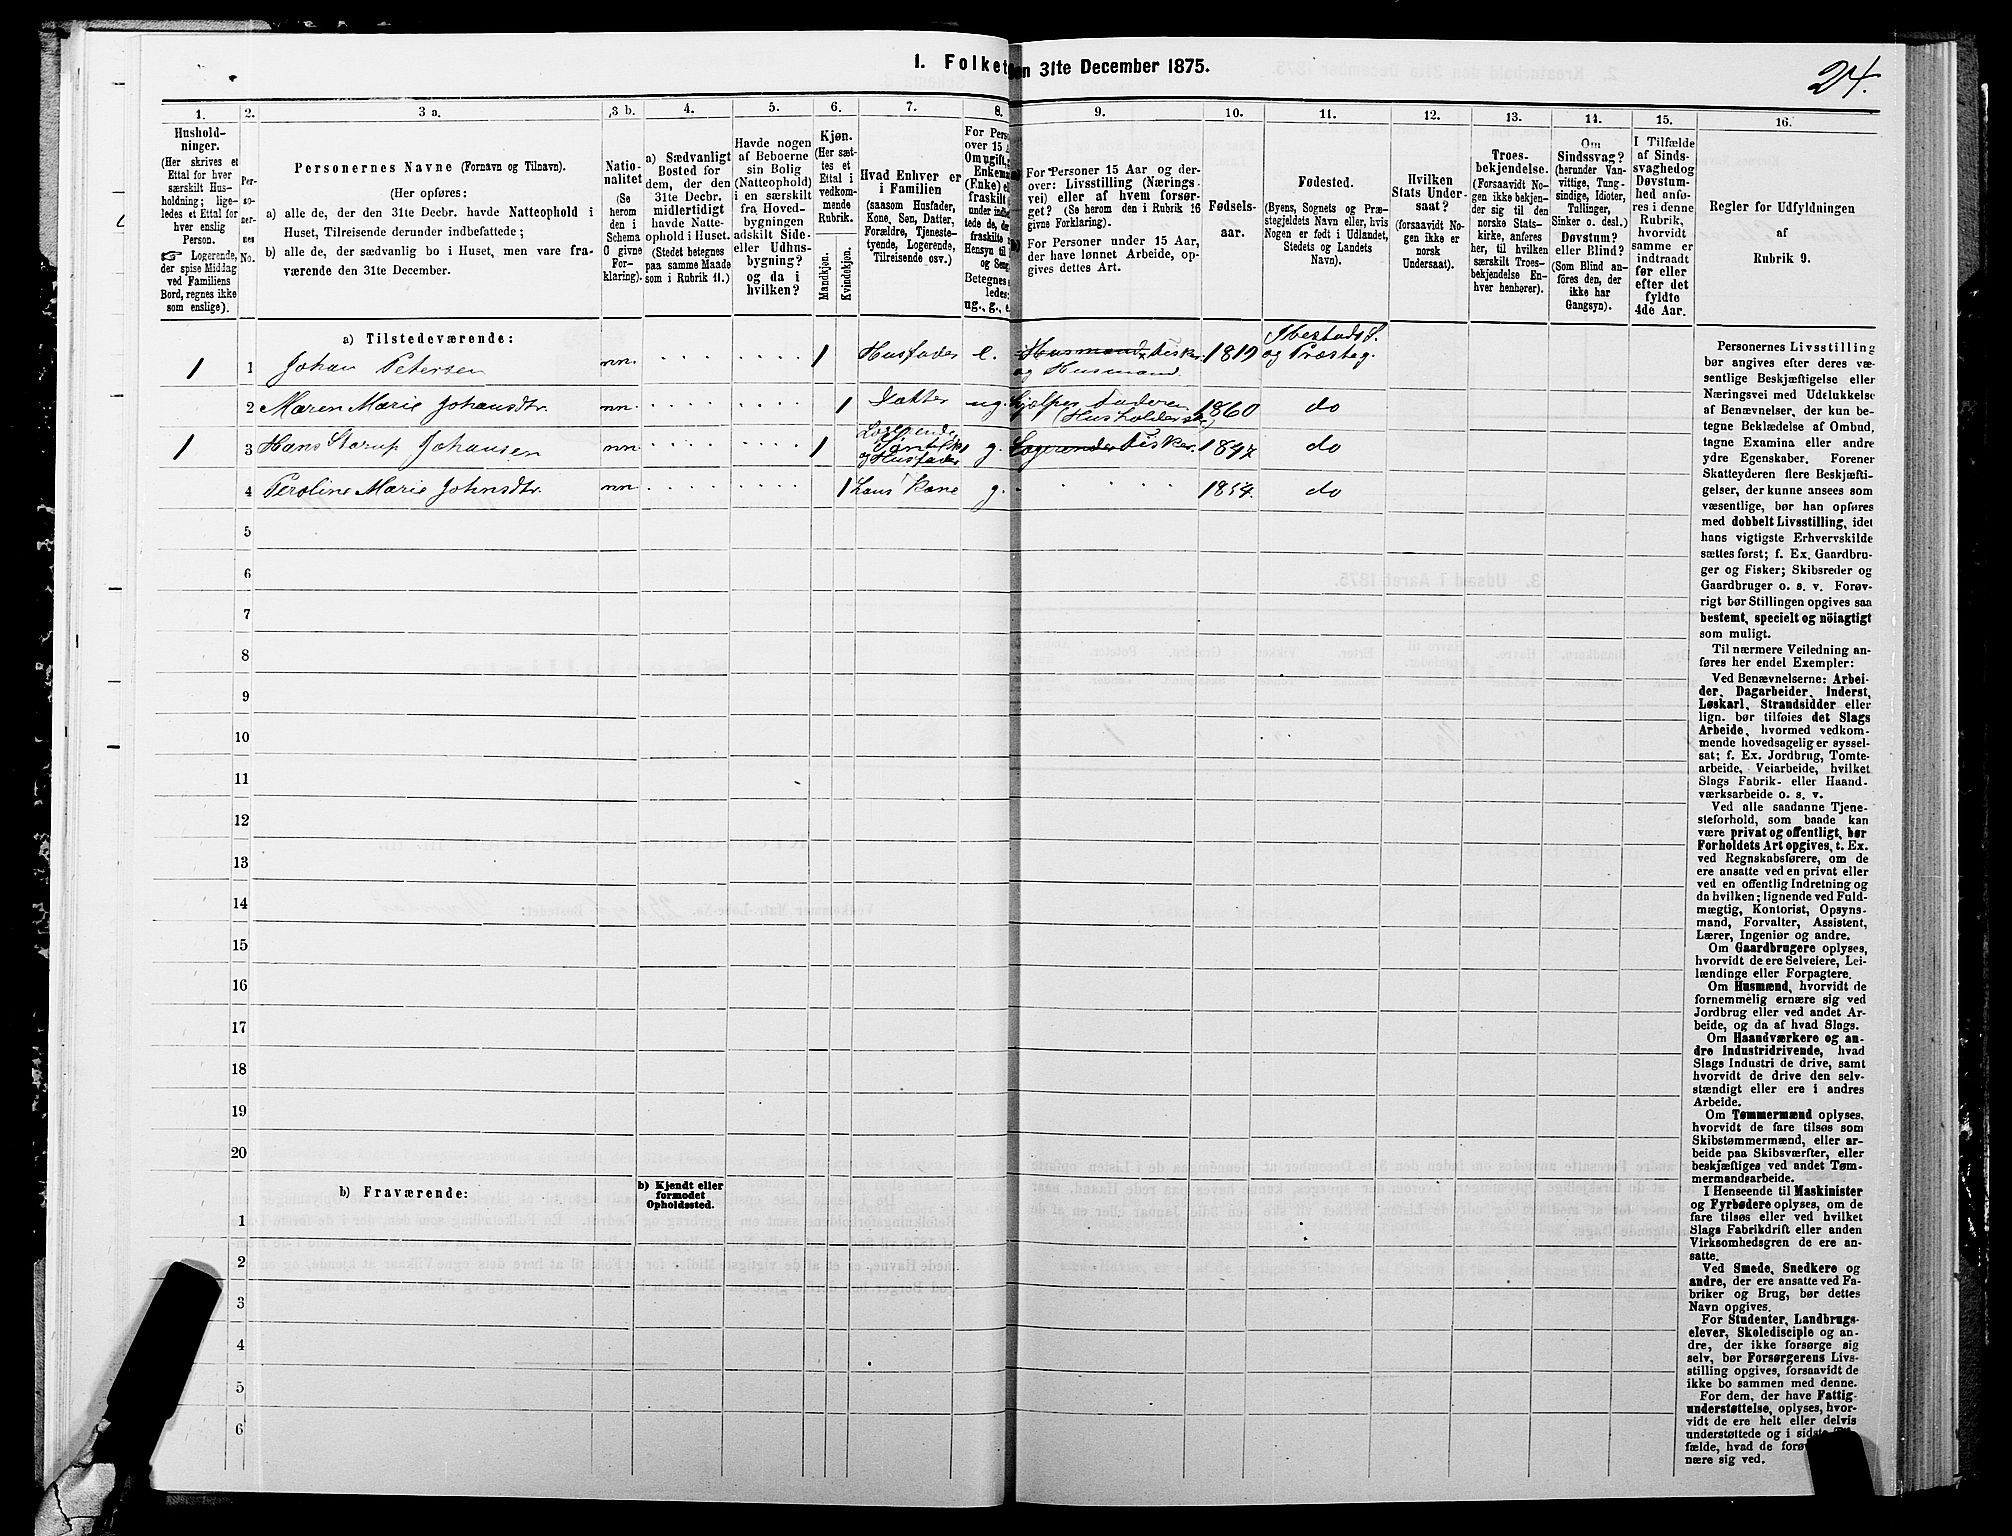 I. Folket
en 31te December 1875.
24.
1.
2.
3 a.
3 b.
4.
5.
6.
7.
8.
9.
10.
11.
12.
13.
14.
15.
16.
Hushold-
ninger.
(Her skrives et
Ettal for hver
særskilt Hus-
holdning; lige-
ledes et Ettal for
hver enslig
Person.
☞ Logerende,
der spise Middag
ved Familiens
Bord, regnes ikke
som enslige).
Per-
so-
ner-
nes
No.
Personernes Navne (Fornavn og Tilnavn).
(Her opføres:
a) alle de, der den 31te Decbr. havde Natteophold i
Huset, Tilreisende derunder indbefattede;
b) alle de, der sædvanlig bo i Huset, men vare fra-
værende den 31te December.
Natio-
nalitet
(Se
herom
den i
Schema
0 givne
For-
klaring).
a) Sædvanligt
Bosted for
dem, der den
31te Decbr.
midlertidigt
havde Natte-
ophold i Huset.
(Stedet betegnes
paa samme Maade
som i Rubrik 11.)
Havde nogen
af Beboerne
sin Bolig
(Natteophold)
i en særskilt
fra Hoved-
bygningen
adskilt Side-
eller Udhus-
bygning?
og da i
hvilken?
Kjøn.
(Her sæt-
tes et
Ettal i
vedkom-
mende
Rubrik.
Mandkjøn.
Kvindekjøn.
Hvad Enhver er
i Familien
(saasom Husfader,
Kone, Søn, Datter,
Forældre, Tjeneste-
tyende, Logerende,
Tilreisende osv.)
For Pers
over 15 A
Om ugift, g
Enkema
(Enke) el
fraskilt
under indbe
tede de,
fraskilte
Hensyn til
og Seng
Betegnes
ledes:
ug., g., e.
For Personer 15 Aar og der-
over: Livsstilling (Nærings-
vei) eller af hvem forsør-
get? (Se herom den i Rubrik 16
givne Forklaring).
For Personer under 15 Aar,
der have lønnet Arbeide, op-
gives dettes Art.
Fødsels-
aar.
Fødested.
(Byens, Sognets og Præ-
stegjeldets Navn eller, hvis
Nogen er født i Udlandet,
Stedets og Landets
Navn).
Hvilken
Stats Under-
saat?
(forsaavidt No-
gen ikke er
norsk
Undersaat).
Troes-
bekjendelse.
(Forsaavidt No-
gen ikke bekjen-
der sig til den
norske Stats-
kirke, anføres
her, til hvilken
særskilt Troes-
bekjendelse En-
hver henhører).
Om
Sindssvag?
(herunder Van-
vittige, Tung-
sindige, Idioter,
Tullinger,
Sinker o. desl.)
Døvstum?
eller Blind?
(Som Blind an-
føres den, der
ikke har
Gangsyn).
I Tilfælde
af Sinds-
svaghed og
Døvstum-
hed anfø-
res i denne
Rubrik,
hvorvidt
samme er
indtraadt
før eller
efter det
fyldte
4de Aar.
Regler for Udfyldningen
af
Rubrik 9.
a) Tilstedeværende:
1 1 Johan Petersen nn. 1 Husfader e. Husmand Fisker og Husmand. 1812 Ibestads S. og Præsteg.
2 Maren Marie Johansdtr. nn. 1 Datter ug. hjælper Faderen (Husholderske) 1860 do
1 3 Hans Storup Johansen nn. 1 Logerende og Husfader g. Logerende Fisker. 1847 do
4 Peroline Marie Johnsdtr. nn. 1 hans Kone g. 1854. do
5
6
7
8
9
10
11
12
13
14
15
16
17
18
19
20
b) Fraværende:
b) Kjendt eller
formodet
Opholdssted.
1
2
3
4
5
6
Personernes Livsstilling
bør angives efter deres væ-
sentlige Beskjæftigelse eller
Næringsvei med Udelukkelse
af Benævnelser, der kun be-
tegne Beklædelse af Ombud,
tagne Examina eller andre
ydre Egenskaber. Forener
Skatteyderen flere Beskjæfti-
gelser, der kunne ansees som
væsentlige, bør han opføres
med dobbelt Livsstilling, idet
hans vigtigste Erhvervskilde
sættes først; f. Ex. Gaardbru-
ger og Fisker; Skibsreder og
Gaardbruger o. s. v. Forøv-
rigt bør Stillingen opgives saa
bestemt, specielt og nöiagtigt
som muligt.
Til nærmere Veiledning an-
føres her endel Exempler:
Ved Benævnelserne: Arbei-
der, Dagarbeider, Inderst,
Løskarl, Strandsidder eller
lign. bør tilføies det Slags
Arbeide, hvormed vedkom-
mende hovedsagelig er syssel-
sat; f. Ex. Jordbrug, Tomte-
arbeide, Veiarbeide, hvilket
Slags Fabrik- eller Haand-
værksarbeide o. s. v.
Ved alle saadanne Tjene-
steforhold, som baade kan
være privat og offentligt, bør
Forholdets Art opgives, t. Ex.
ved Regnskabsførere, om de
ere ansatte ved en privat eller
ved en offentlig Indretning og
da hvilken; lignende ved Fuld-
mægtig, Kontorist, Opsyns-
mand, Forvalter, Assistent,
Lærer, Ingeniør og andre.
Om Gaardbrugere oplyses,
hvorvidt de ere Selveiere, Lei-
lændinge eller Forpagtere.
Om Husmænd, hvorvidt de
fornemmelig ernære sig ved
Jordbrug eller ved andet Ar-
beide, og da af hvad Slags.
Om Haandværkere og an-
dre Industridrivende, hvad
Slags Industri de drive, samt
hvorvidt de drive den selv-
stændigt eller ere i andres
Arbeide.
Om Tømmermænd oplyses,
hvorvidt de fare tilsøs som
Skibstømmermænd, eller ar-
beide paa Skibsværfter, eller
beskjæftiges ved andet Tøm-
mermandsarbeide.
I Henseende til Maskinister
og Fyrbødere oplyses, om de
fare tilsøs eller ved hvilket
Slags Fabrikdrift eller anden
Virksomhedsgren de ere an-
satte.
Ved Smede, Snedkere og
andre, der ere ansatte ved Fa-
briker og Brug, bør dettes
Navn opgives.
For Studenter, Landbrugs-
elever, Skoledisciple og an-
dre, der ikke forsørge sig
selv, bør Forsørgerens Livs-
stilling opgives, forsaavidt de
ikke bo sammen med denne.
For dem, der have Fattig-
understøttelse, oplyses, hvor-
vidt de ere helt eller delvis
understøttede og i sidste
fælde, hvad de
nære sig ved.